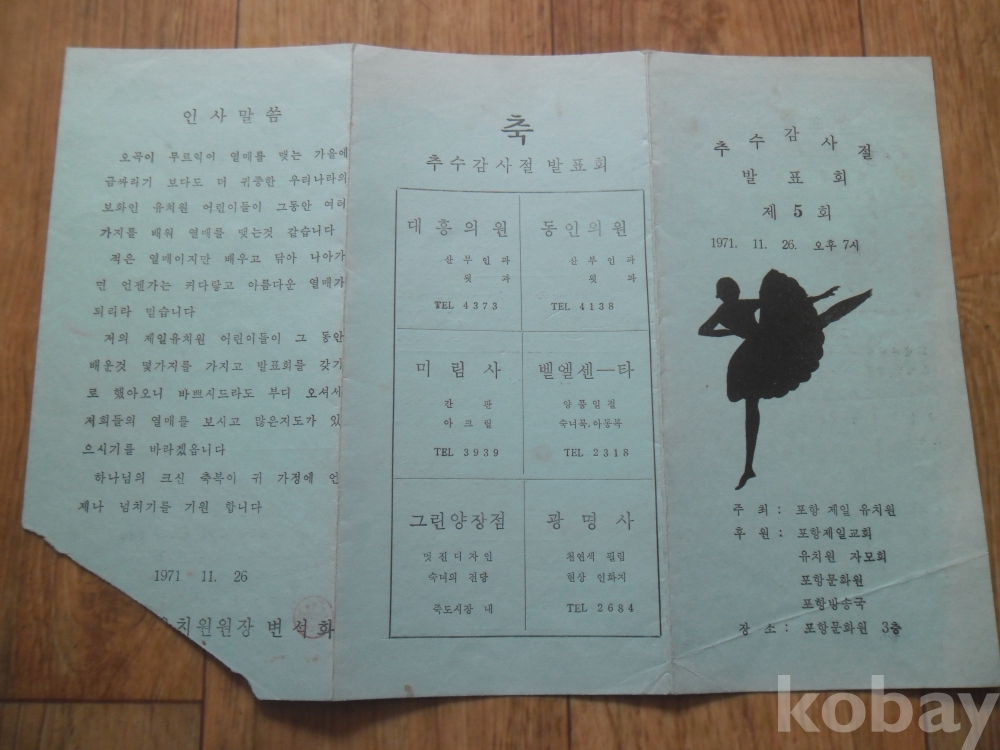 인사말씀
오곡이 무르익어 열매를 맺는 가을에
금싸라기 보다도 더 귀중한 우리나라의
보화인 유치원 어린이들이 그동안 여러
가지를 배워 열매를 맺는것 같습니다
적은 열매이지만 배우고 닦아 나아가
면 언젠가는 커다랗고 아름다운 열매가
되리라 믿습니다
저의 제일유치원 어린이들이 그 동안
배운것 몇가지를 가지고 발표회를 갖기
로 했아오니 바쁘시드라도 부디 오셔서
저희들의 열매를 보시고 많은지도가 있
으시기를 바라겠읍니다
하나님의 크신 축복이 귀 가정에 언
제나 넘치기를 기원 합니다
1971 11. 26
유치원원장 변석화
축
추수감사절 발표회
대흥의원
산부인과
뒷과
TEL 4373
동인의원
산부인과
뒷과
TEL 4138
미림사
간판
아크릴
TEL 3939
벧엘센―타
양품일절
숙녀복.아동복
TEL 2318
그린양장점
멋진디자인
숙녀의 전당
죽도시장 내
광명사
천연색 필림
현상 인화지
TEL 2684
추수감사절
발표회
제5회
1971. 11. 26. 오후 7시
주최: 포항 제일 유치원
후원: 포항제일교회
유치원 자모회
포항문화원
포항방송국
장소: 포항문화원 3층
kobay